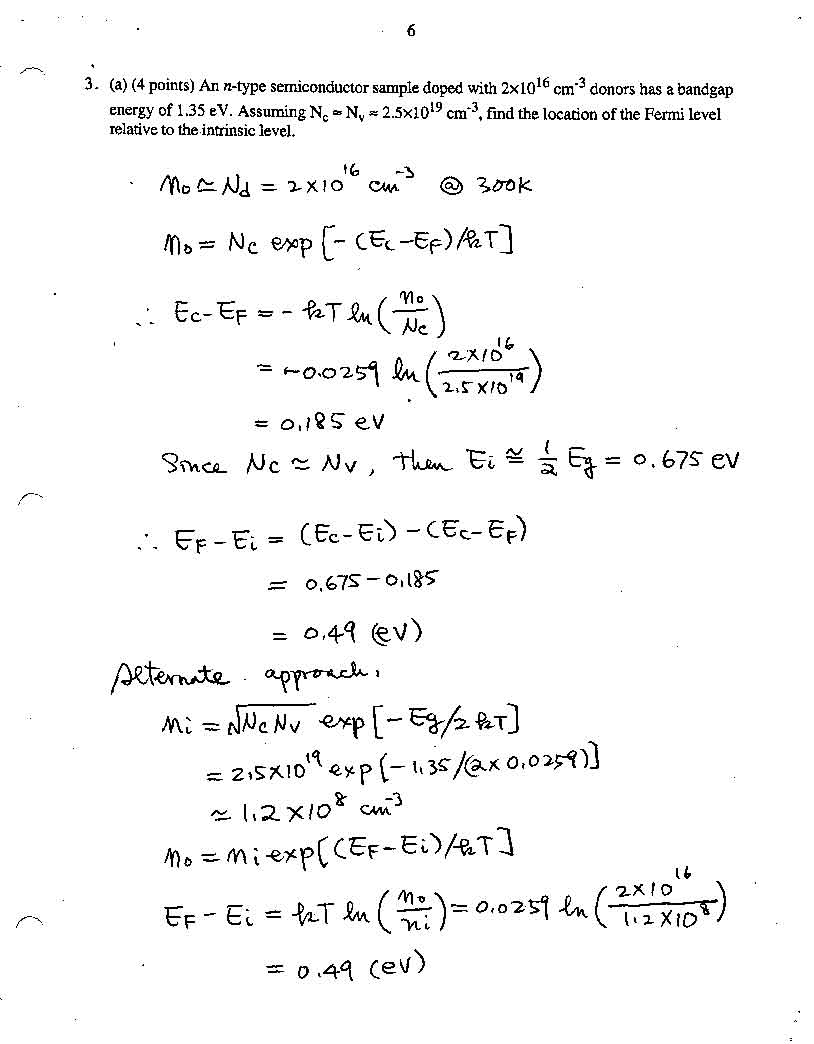 6
3. (a) (4 points) An n-type semiconductor sample doped with 2×10^16 cm^-3 donors has a bandgap
energy of 1.35 eV. Assuming N_c ≈ N_v ≈ 2.5×10^19 cm^-3, find the location of the Fermi level
relative to the intrinsic level.
n_o ≃ N_d = 2×10^16 cm^-3 @ 300K
n_o = N_c exp [-(E_c-E_F)/kT]
∴ E_c-E_F = - kT ln(n_o/N_c)
= -0.0259 ln(2×10^16/2.5×10^19)
= 0.185 eV
Since N_c ≃ N_v, then E_i ≅ 1/2 E_g = 0.675 eV
∴ E_F-E_i = (E_c-E_i)-(E_c-E_F)
= 0.675-0.185
= 0.49 (eV)
Alternate approach:
n_i = √(N_c N_v) exp[-E_g/2kT]
= 2.5×10^19 exp[-1.35/(2×0.0259)]
≃ 1.2×10^8 cm^-3
n_o = n_i exp[(E_F-E_i)/kT]
E_F-E_i = kT ln(n_o/n_i) = 0.0259 ln(2×10^16/1.2×10^8)
= 0.49 (eV)